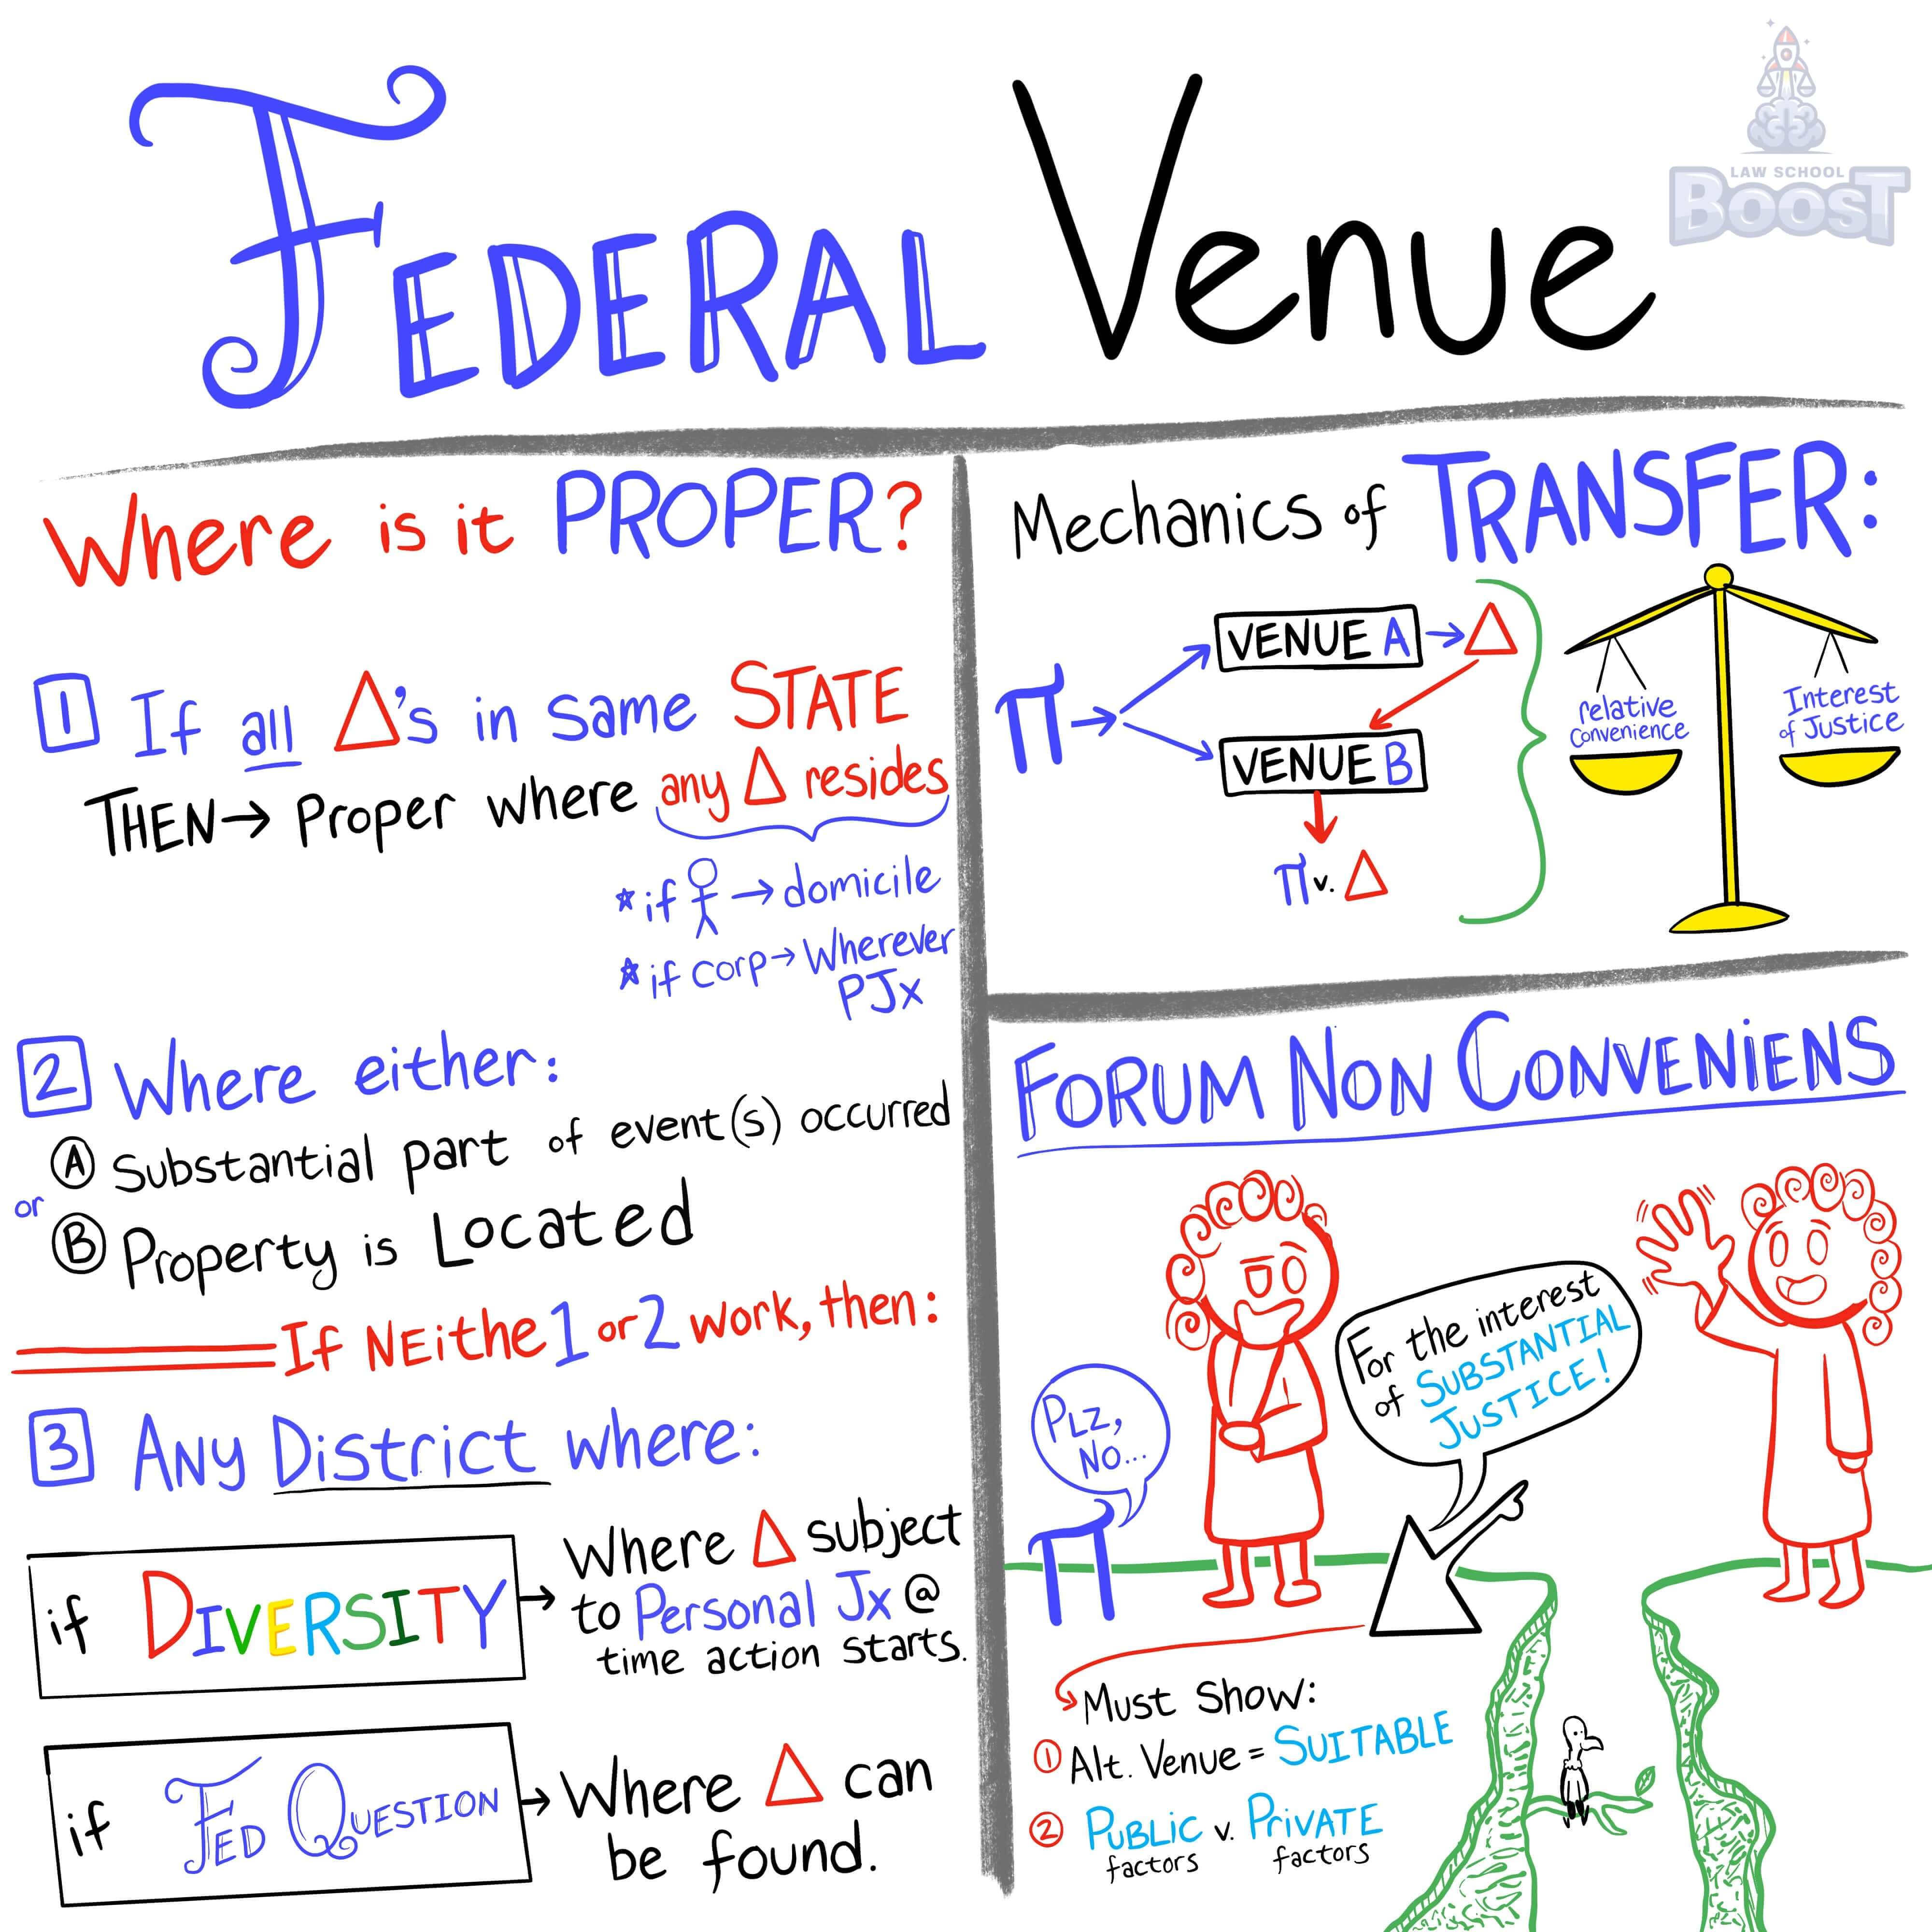 FEDERAL Venue
LAW SCHOOL
BOOST
Where is it PROPER?
1 If all Δ's in same STATE
THEN→ Proper where any Δ resides
*if → domicile
*if corp→ Wherever
PJx
2 Where either:
Ⓐ Substantial part of event(s) occurred
or
Ⓑ Property is Located
If NEithe 1 or 2 work, then:
3 ANy District where:
if DIVERSITY → Where Δ subject
to Personal Jx @
time action starts.
if FED QUESTION → Where Δ can
be found.
Mechanics of TRANSFER:
π → VENUE A → Δ
VENUE B
π v. Δ
relative
Convenience
Interest
of Justice
FORUM NON CONVENiENS
PLZ,
NO...
π
For the interest
of SUBSTANTIAL
JUSTICE!
Must Show:
① Alt. Venue = SUITABLE
② PUBLIC v. PRiVATE
factors factors